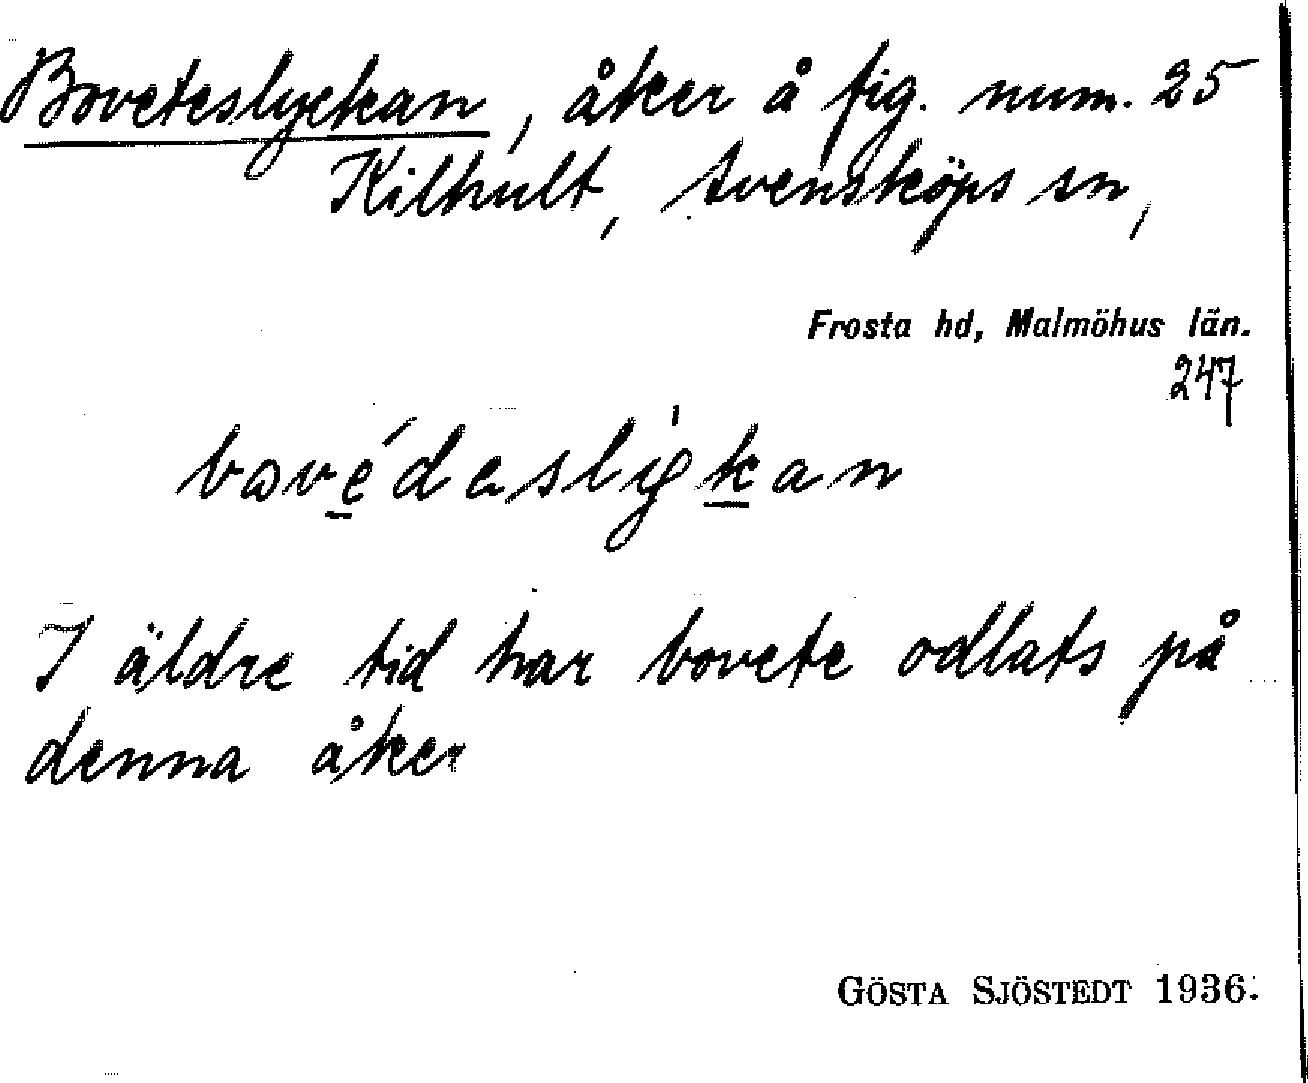 Boveteslyckan, åker å fig. num. 25
Kilhult, Svensköps sn,
Frosta hd, Malmöhus län.
247
I äldre tid har bovete odlats på
denna åker
GÖSTA SJÖSTEDT 1936.